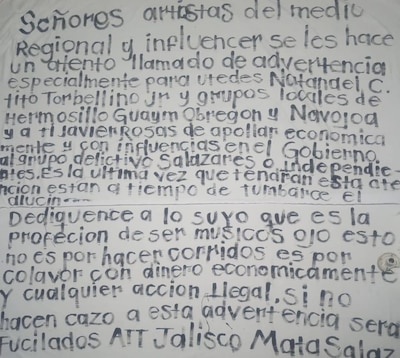 Señores artistas del medio
Regional y influencer se les hace
un atento llamado de advertencia
especialmente para utedes Natanael C.
tito Torbellino jr y grupos locales de
Hermosillo Guaym Obregon y Navojoa
y a ti Javier Rosas de apollar economica
mente y con influencias en el Gobierno
al grupo delictivo Salazares o Independie-
ntes. Es la ultima vez que tendran esta ate
ncion estan a tiempo de tumbarce el
alucin----
Dediquence a lo suyo que es la
profecion de ser musicos ojo esto
no es por hacer corridos es por
colavor con dinero economicamente
y cualquier accion Ilegal. si no
hacen cazo a esta advertencia sera
Fucilados ATT Jalisco Mata Salaz